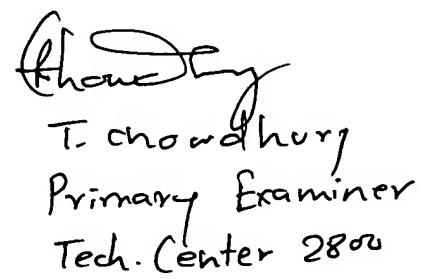 Chowdhury
T. Chowdhury
Primary Examiner
Tech. Center 2800